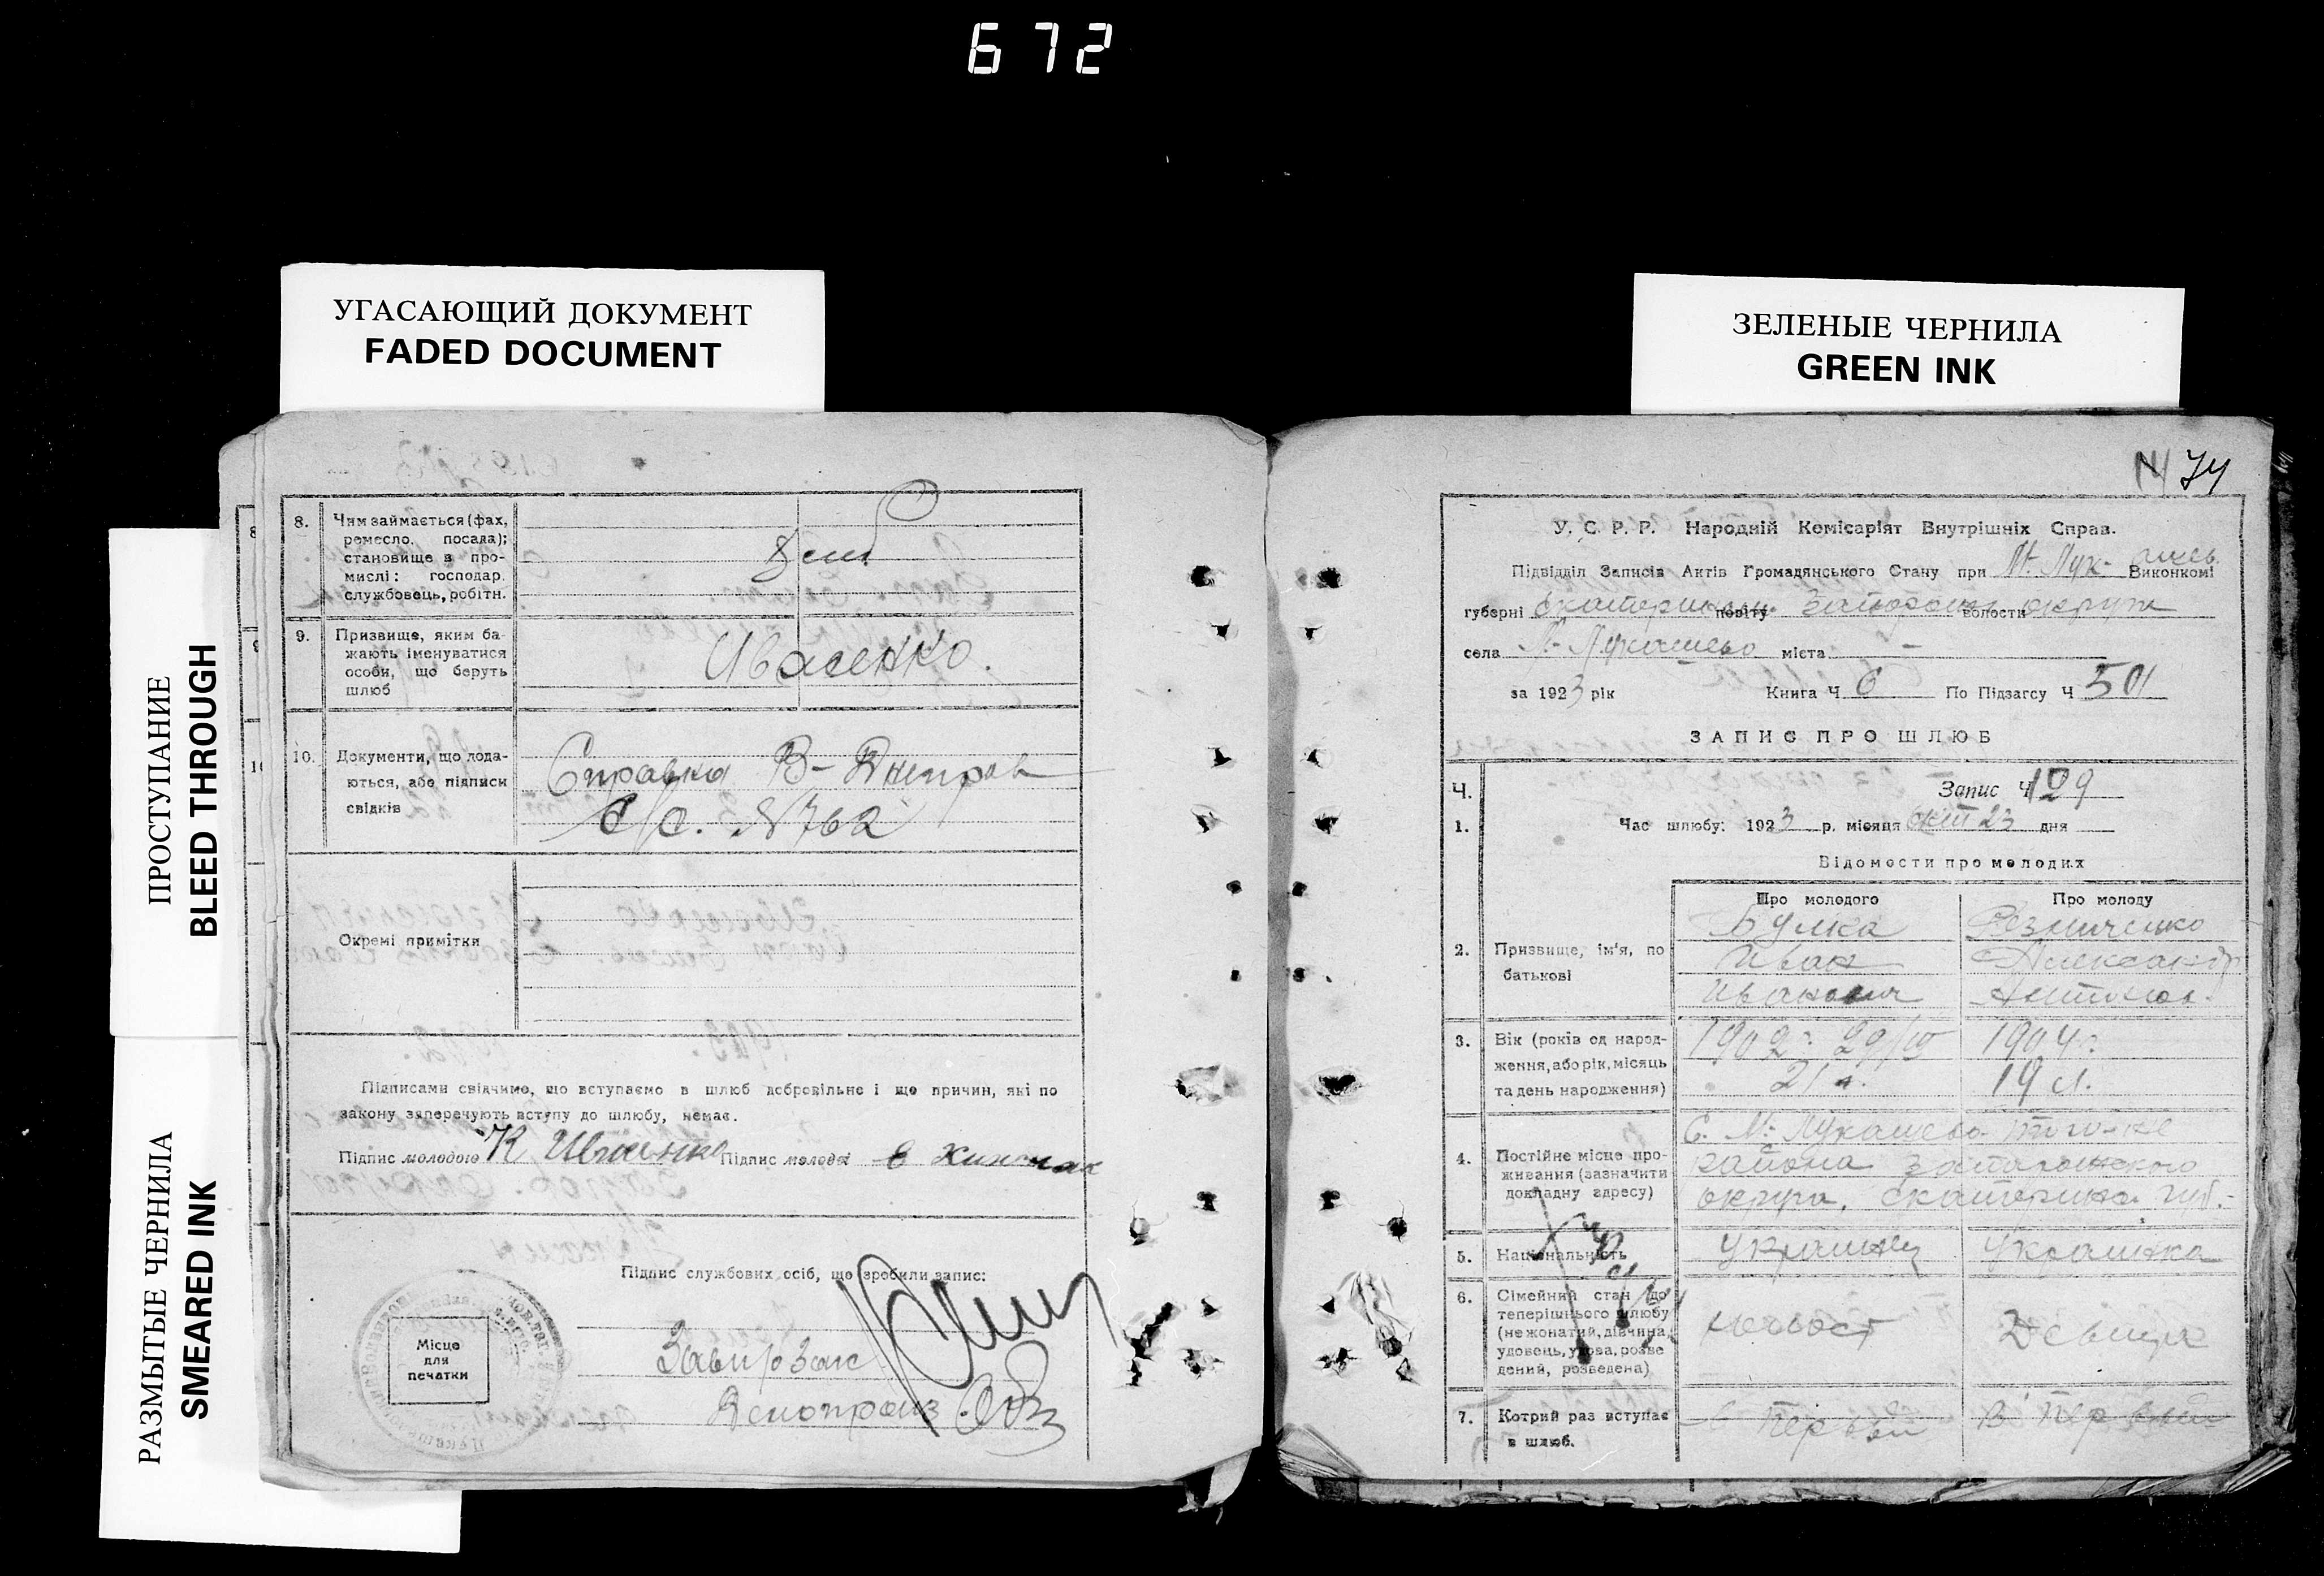 672
УГАСАЮЩИЙ ДОКУМЕНТ
FADED DOCUMENT
ПРОСТУПАНИЕ
BLEED THROUGH
РАЗМЫТЫЕ ЧЕРНИЛА
SMEARED INK
8. Чим займається (фах,
ремесло, посада);
становище в про-
мислі: господар.
службовець, робітн.
9. Призвище, яким ба-
жають іменуватися
особи, що беруть
шлюб
Ивасенко.
10. Документи, що дода-
ються, або підписи
свідків
Справка В-Днепров
С/С. №762
Окремі примітки
Підписами свідчимо, що вступаємо в шлюб добровільне і що причин, які по
закону заперечують вступу до шлюбу, немає.
Підпис молодого К Ивасенко Підпис молодої
Підпис службових осіб, що зробили запис:
Завпрзаг
Делопроиз
Місце
для
печатки
ЗЕЛЕНЫЕ ЧЕРНИЛА
GREEN INK
74
У. С. Р. Р. Народній Комісаріят Внутрішніх Справ.
Підвідділ Записів Актів Громадянського Стану при М. Лукашев Виконкомі
губерні Екатеринос повіту Запорожск волости округа
села М-Лукашево міста -
за 1923 рік Книга Ч 6 По Підзагсу Ч 501
ЗАПИС ПРО ШЛЮБ
Ч. Запис Ч 109
1. Час шлюбу: 1923 р. місяця окт 23 дня
Відомости про молодих
Про молодого Про молоду
2. Призвище, ім'я, по
батькові
Булка Резниченко
Иван Александр
Иванович Антонов.
3. Вік (років од народ-
ження, або рік, місяць
та день народження)
1902 г. 29/IV 1904 г.
21 л. 19 л.
4. Постійне місце про-
живання (зазначити
докладну адресу)
С. М. Лукашево того-же
района Запорожского
округа, Екатеринос. губ.
5. Національність
Украинец Украинка
6. Сімейний стан до
теперішнього шлюбу
(не жонатий, дівчина,
удовець, удова, розве
дений, розведена)
холост Девица
7. Котрий раз вступає
в шлюб.
в первый в первый